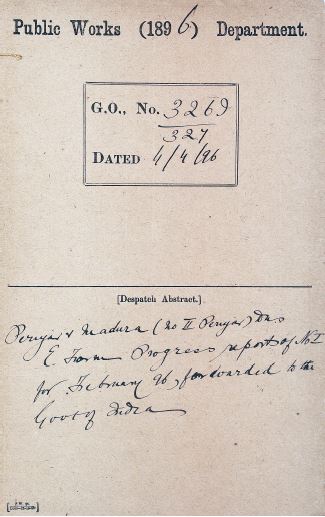 Public Works (1896) Department.
G.O., No. 3269
327
DATED 4/4/96
[Despatch Abstract.]
Periyar & Madura (No II Periyar) Dns
E Form Progress report of No I
for February 96, forwarded to the
Govt of India